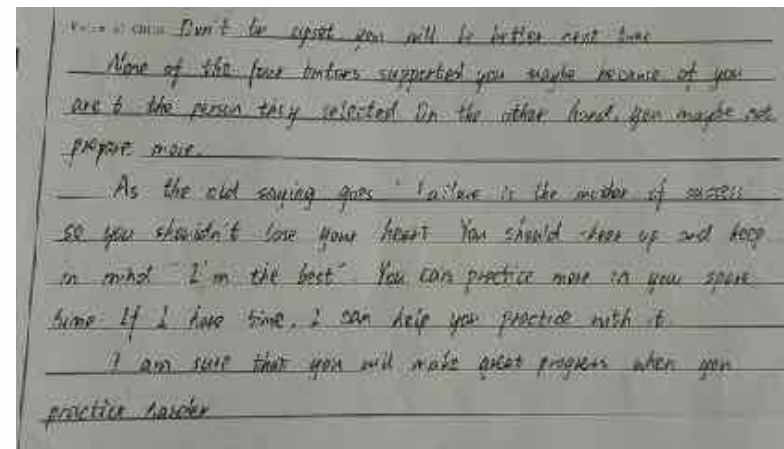 Voice of China Don't be upset you will be better next time
None of the four tutors supported you maybe because of you
are t the person they selected On the other hand, you maybe not
prepare more.
As the old saying goes " Failure is the mother of success
so you shouldn't lose your heart You should cheer up and keep
in mind "I'm the best" You can practice more in you spare
time If I have time, I can help you practice with it
I am sure that you will make great progress when you
practice harder